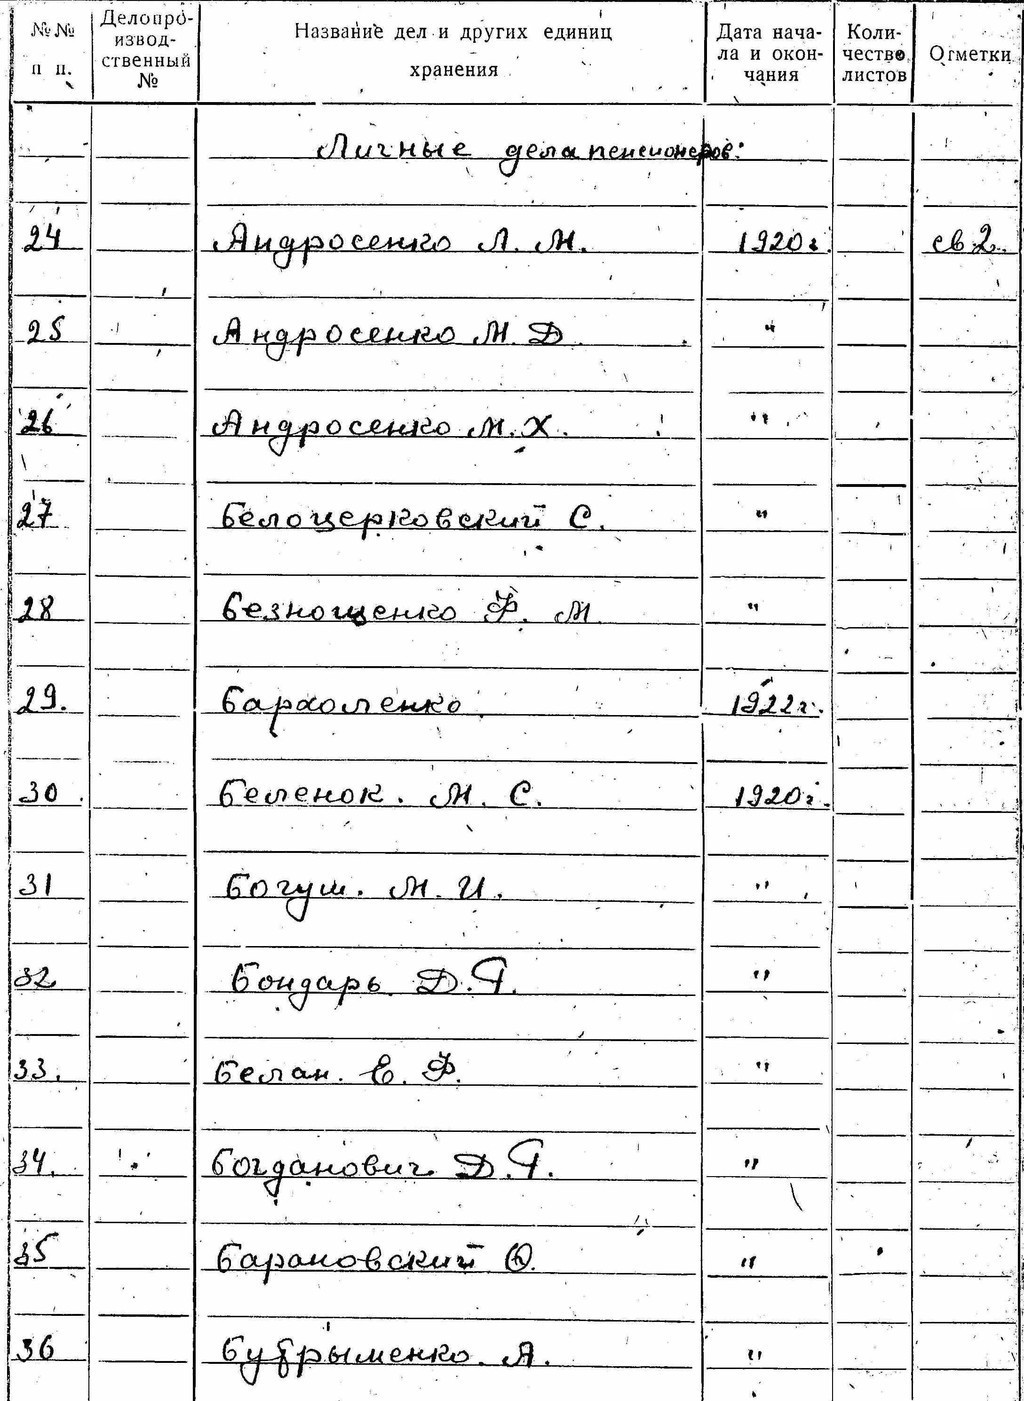 №№ п п. Делопроизводственный № Название дел и других единиц хранения Дата начала и окончания Количество листов Отметки
Личные дела пенсионеров:
24 Андросенко Л. М. 1920г. св 2.
25 Андросенко М. Д "
26 Андросенко М. Х. "
27 Белоцерковский С. "
28 Безнощенко Ф. М "
29. Бархоленко 1922г.
30 Беленок. М. С. 1920г.
31 Богуш. М. И. "
32 Бондарь Д. Г. "
33. Белан. Е. Ф. "
34. Богданович Д. Г. "
35 Барановский О. "
36 А. "